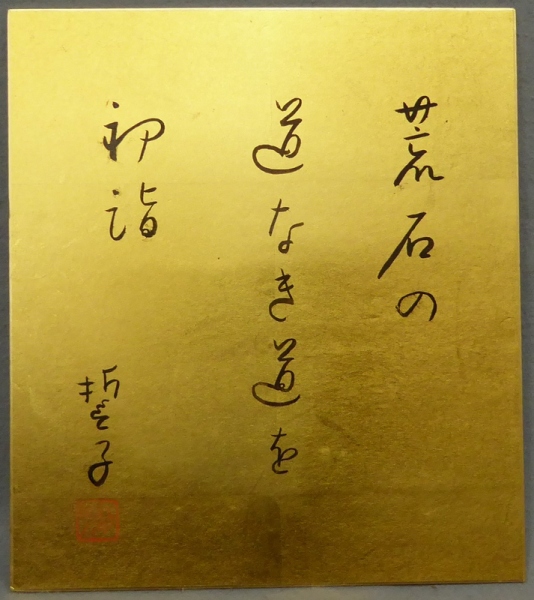 荒石の
道なき道を
初詣
誓子